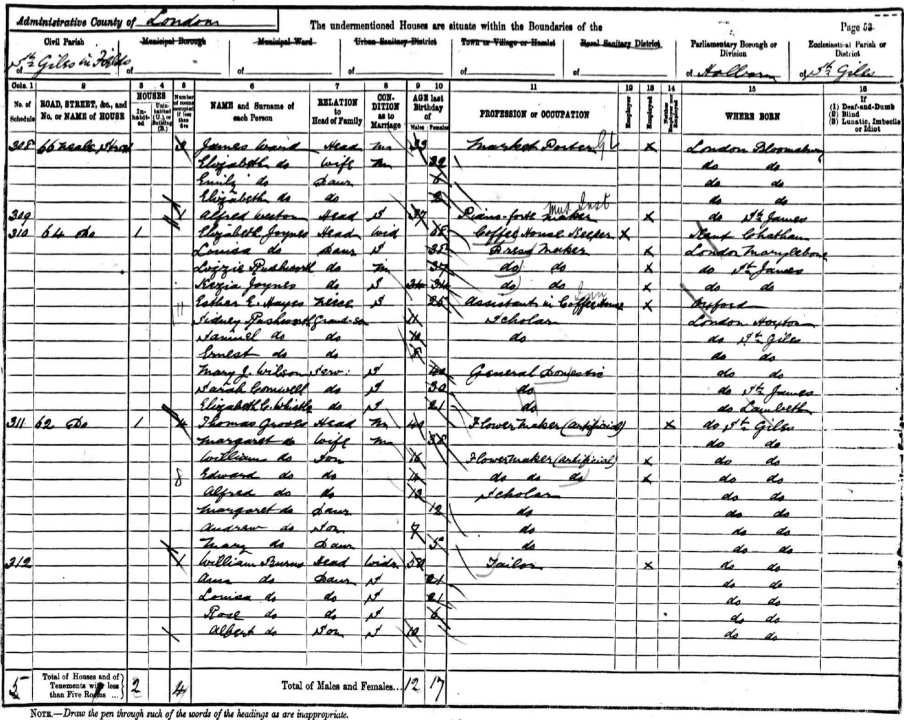 Administrative County of London The undermentioned Houses are situate within the Boundaries of the Page 53
Civil Parish Municipal Borough Municipal Ward Urban Sanitary District Town or Village or Hamlet Rural Sanitary District Parliamentary Borough or Division Ecclesiastical Parish or District
of St Giles in Fields of of of of of of Holborn of St Giles
Cols. 1 2 3 4 5 6 7 8 9 10 11 12 13 14 15 16
No. of Schedule ROAD, STREET, &c., and No. or NAME of HOUSE HOUSES Inhabited Uninhabited (U.) or Building (B.) Number of rooms occupied if less than five NAME and Surname of each Person RELATION to Head of Family CONDITION as to Marriage AGE last Birthday of Males Females PROFESSION or OCCUPATION Employer Employed Neither WHERE BORN If (1) Deaf-and-Dumb (2) Blind (3) Lunatic, Imbecile or Idiot
308 66 Neale Street James Ward Head M 33 Market Porter x London Bloomsbury
Elizabeth do Wife M 32 do do
Emily do Daur do do
Elizabeth do do 2 do do
309 1 Alfred Weston Head S 37 Piano-forte maker x do St James
310 64 Do 1 Elizabeth Joynes Head Wid Coffee House Keeper x Kent Chatham
Louisa do Daur S 35 Dress Maker x London Marylebone
Lizzie Rushworth do M 37 do do x do St James
Kezia Joynes do S 34 do do x do do
Esther E. Hayes Neese S Assistant in Coffee House x Oxford
Sidney Rushworth Grand-son 11 Scholar London Hoxton
Samuel do do 10 do do St Giles
Ernest do do 8 do do
Mary J. Wilson Serv: S 40 General Domestic do do
Sarah Cornwell do S 30 do do St James
Elizabeth C. do S 21 do do Lambeth
311 62 Do 1 4 Thomas Groves Head M Flower maker (artificial) x do St Giles
Margaret do Wife M 38 do do
William do Son 16 Flower maker (artificial) x do do
8 Edward do do 14 do do do x do do
Alfred do do 13 Scholar do do
Margaret do Daur 12 do do do
Andrew do Son 7 do do do
Mary do Daur 5 do do do
312 1 William Burns Head Widr Tailor x do do
Ann do Daur S 21 do do
Louisa do do S 21 do do
Rose do do S 6 do do
Albert do Son S 10 do do
5 Total of Houses and of Tenements with less than Five Rooms 2 4 Total of Males and Females... 12 17
NOTE.—Draw the pen through such of the words of the headings as are inappropriate.